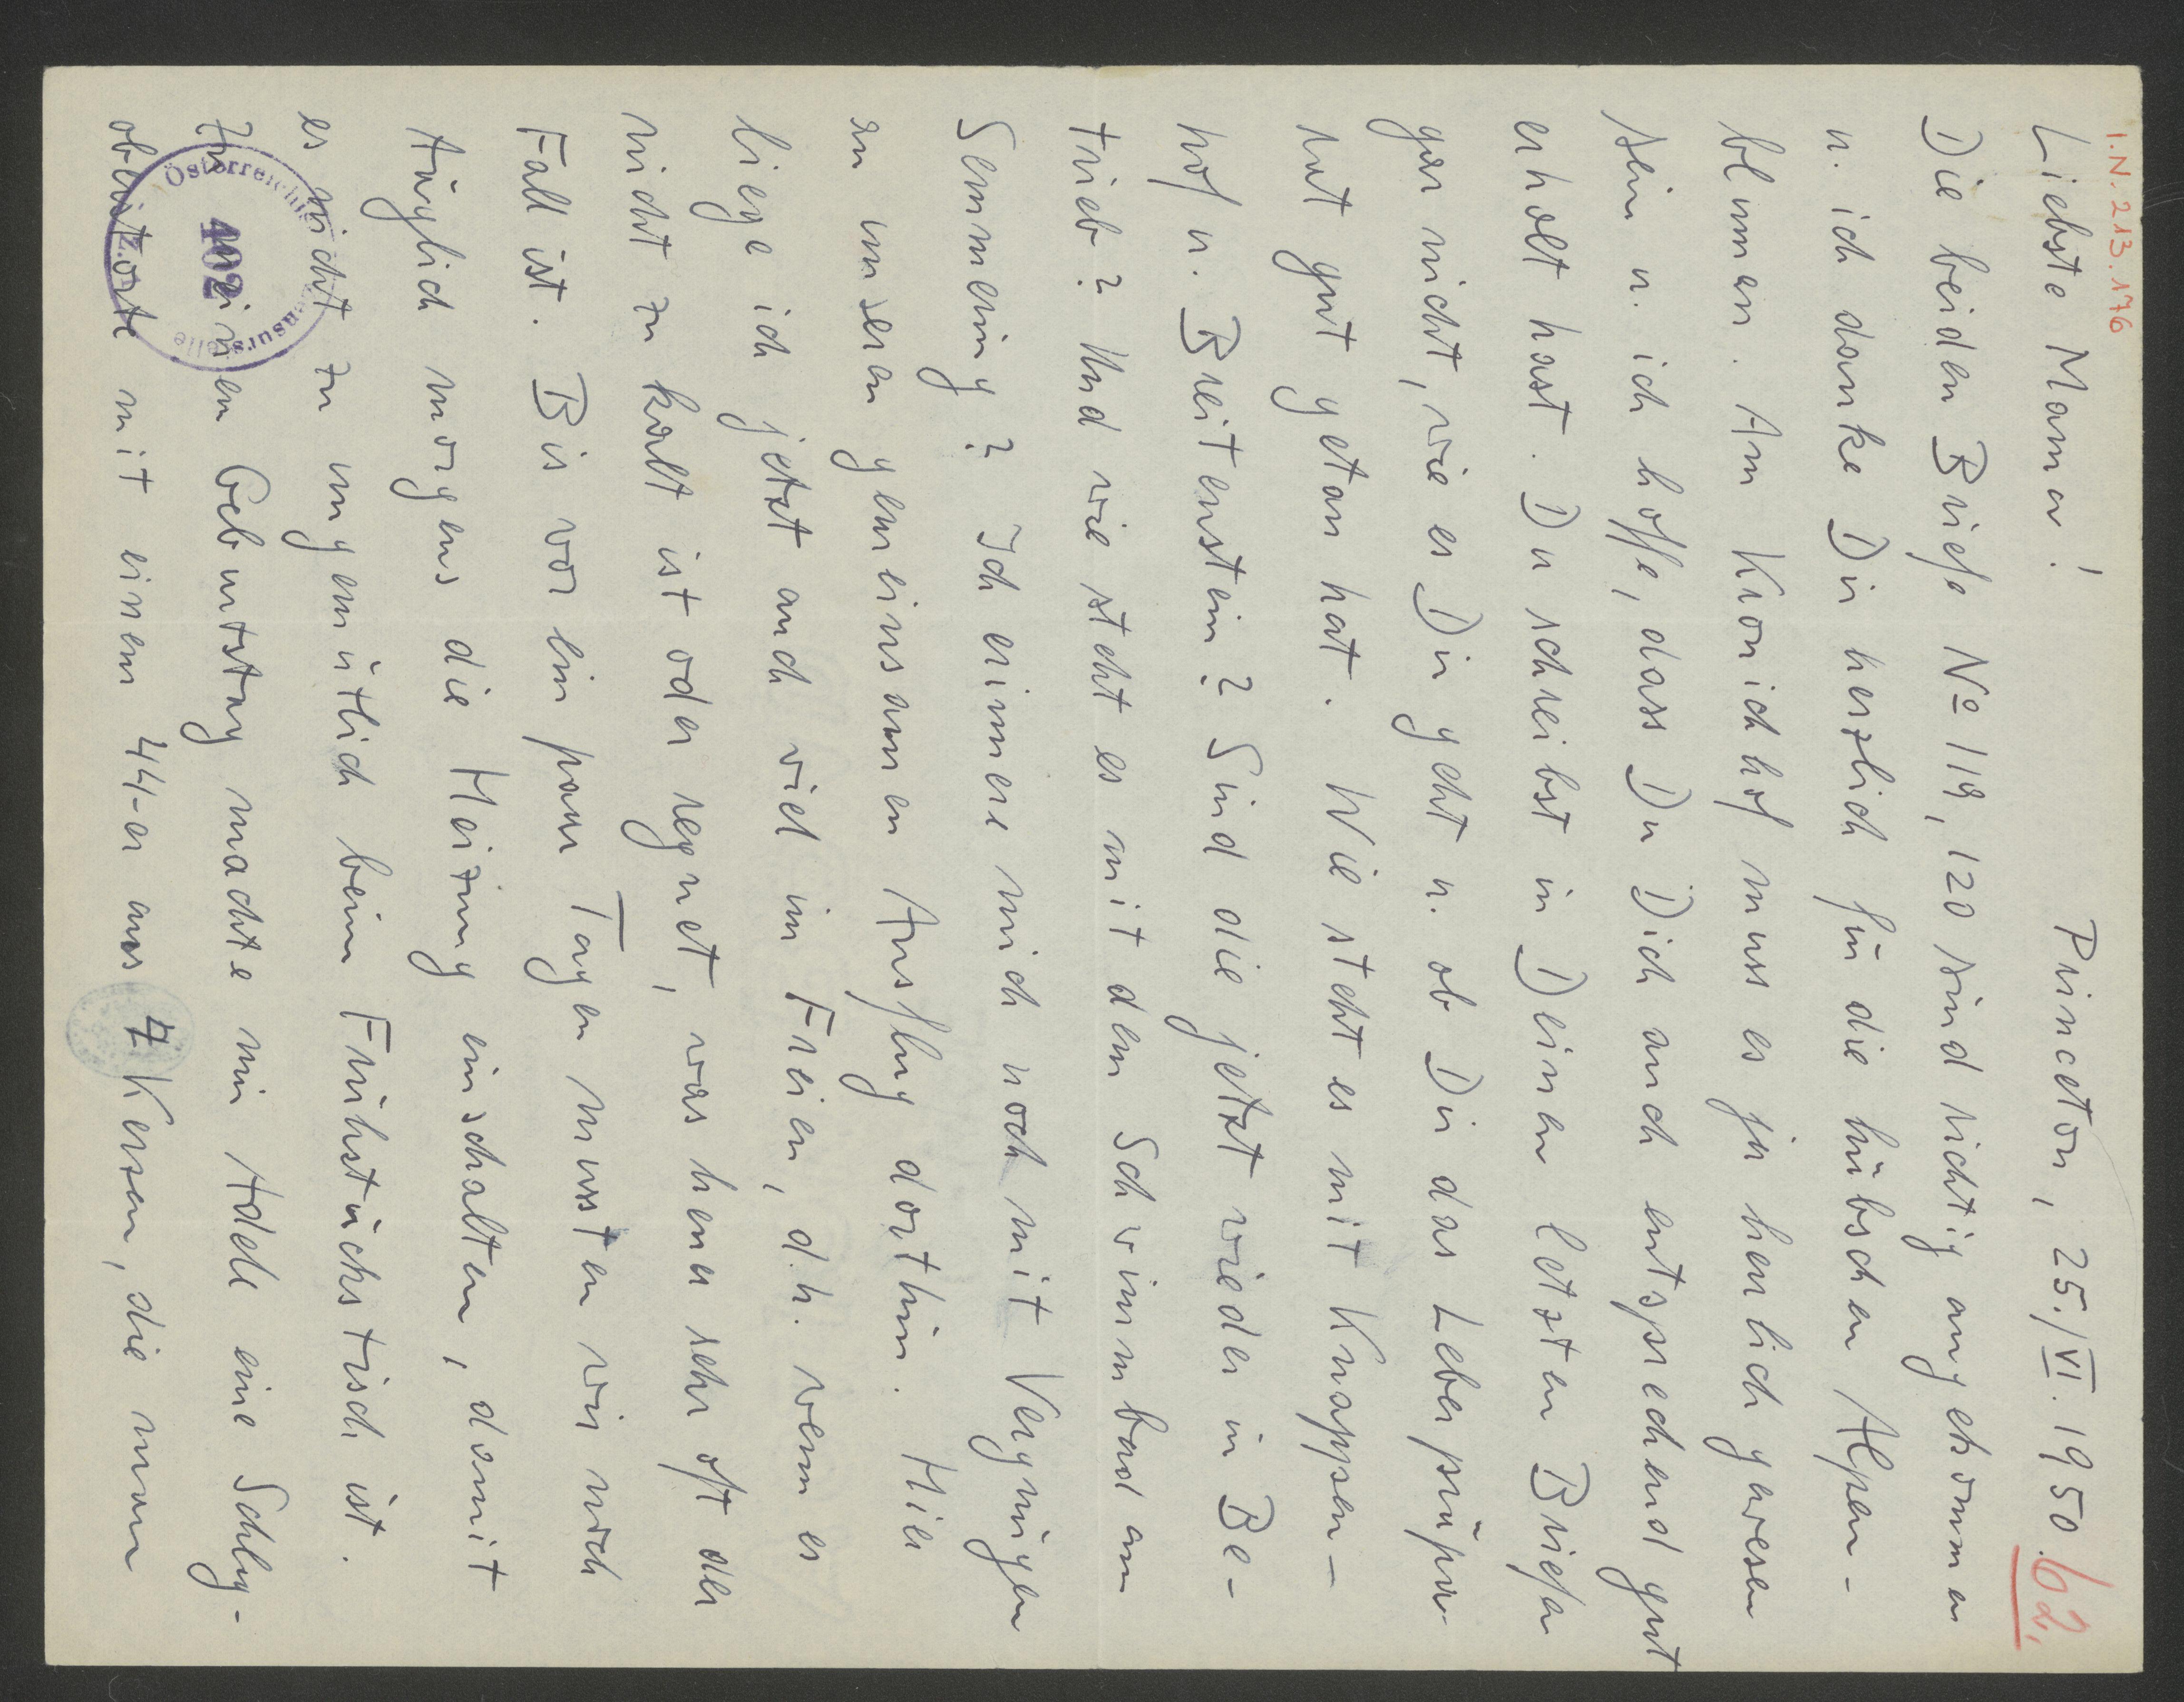 I.N. 213.176
Liebste Mama!
Princeton, 25./VI. 1950.
62.
Die beiden Briefe No 119, 120 sind richtig angekommen
u. ich danke Dir herzlich für die hübschen Alpen-
blumen. Am Kronichhof muss es ja herrlich gewesen
sein u. ich hoffe, dass Du Dich auch entsprechend gut
erholt hast. Du schreibst in Deinen letzten Briefen
gar nicht, wie es Dir geht u. ob Dir das Leberpräpa-
rat gut getan hat. Wie steht es mit Knappen-
hof u. Breitenstein? Sind die jetzt wieder in Be-
trieb? Und wie steht es mit dem Schwimmbad am
Semmering? Ich erinnere mich noch mit Vergnügen
an unseren gemeinsamen Ausflug dorthin. Hier
liege ich jetzt auch viel im Freien, d.h. wenn es
nicht zu kalt ist oder regnet, was heuer sehr oft der
Fall ist. Bis vor ein paar Tagen mussten wir noch
täglich morgens die Heizung einschalten, damit
es nicht zu ungemütlich beim Frühstückstisch ist.
Zu meinem Geburtstag machte mir Adele eine Schlag-
oberstorte mit einem 44-er aus 7 Kerzen, die man
Österreichische Zensurstelle
402